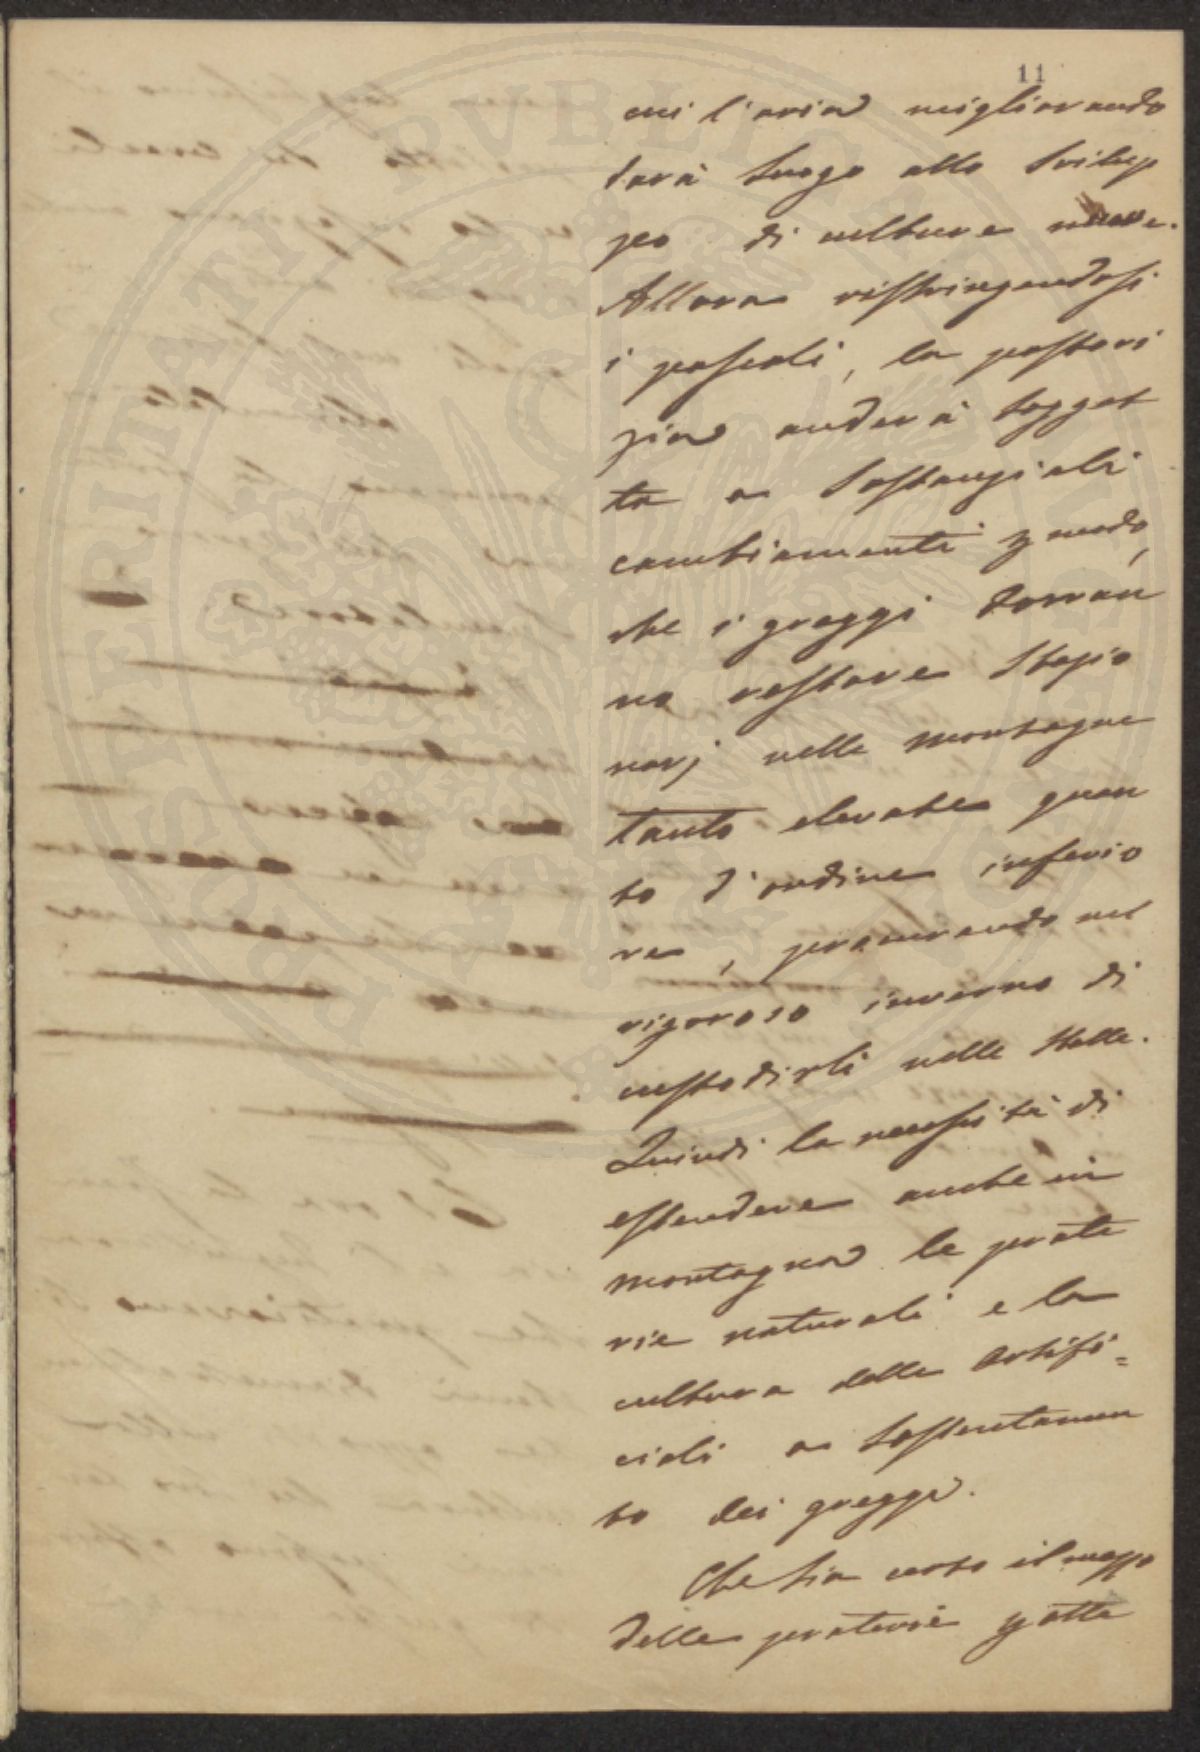 11
cui l'aria migliorando
darà luogo allo svilup
po di culture nuove.
Allora ristringendosi
i pascoli, la pastori
zia anderà sogget
ta a sostanziali
cambiamenti p modo,
che i greggi dovran
no restare stazio
narj nelle montagne
tanto elevate quan
to d'ordine inferio
re, procurando nel
rigoroso inverno di
custodirli nelle stalle.
Quindi la necessità di
estendere anche in
montagna le prate
rie naturali e la
cultura delle artifi=
ciali a sostentamen
to dei greggi.
Che sia certo il mezzo
delle praterie p atte
POSTERITATI PVBLICAE